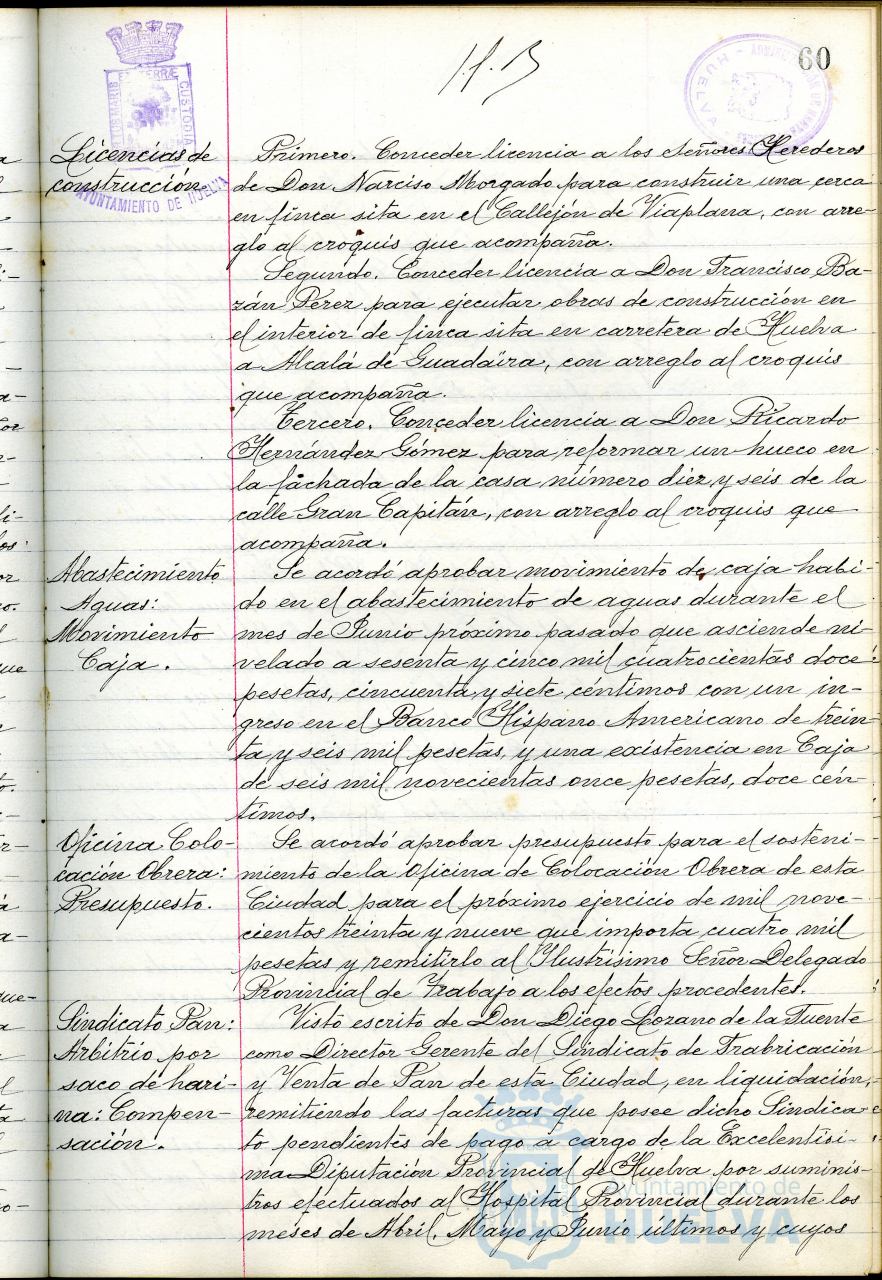 60
PORTUS MARIS ET TERRÆ CUSTODIA
AYUNTAMIENTO DE HUELVA
HUELVA
Licencias de
construcción
Primero. Conceder licencia a los Señores Herederos
de Don Narciso Morgado para construir una cerca
en finca sita en el Callejón de Viaplana, con arre-
glo al croquis que acompaña.
Segundo. Conceder licencia a Don Francisco Ba-
zán Perez para ejecutar obras de construcción en
el interior de finca sita en carretera de Huelva
a Alcalá de Guadaira, con arreglo al croquis
que acompaña.
Tercero. Conceder licencia a Don Ricardo
Hernández Gómez para reformar un hueco en
la fachada de la casa número diez y seis de la
calle Gran Capitán, con arreglo al croquis que
acompaña.
Abastecimiento
Aguas:
Movimiento
Caja.
Se acordó aprobar movimiento de caja habi-
do en el abastecimiento de aguas durante el
mes de Junio próximo pasado que asciende ni-
velado a sesenta y cinco mil cuatrocientas doce
pesetas, cincuenta y siete céntimos con un in-
greso en el Banco Hispano Americano de trein-
ta y seis mil pesetas, y una existencia en Caja
de seis mil novecientas once pesetas, doce cén-
timos.
Oficina Colo-
cación Obrera:
Presupuesto.
Se acordó aprobar presupuesto para el sosteni-
miento de la Oficina de Colocación Obrera de esta
Ciudad para el próximo ejercicio de mil nove-
cientos treinta y nueve que importa cuatro mil
pesetas y remitirlo al Ilustrísimo Señor Delegado
Provincial de Trabajo a los efectos procedentes.
Sindicato Pan:
Arbitrio por
saco de hari-
na: Compen-
sación.
Visto escrito de Don Diego Lozano de la Fuente
como Director Gerente del Sindicato de Frabricación
y Venta de Pan de esta Ciudad, en liquidación,
remitiendo las facturas que posee dicho Sindica-
to pendientes de pago a cargo de la Excelentísi-
ma Diputación Provincial de Huelva por suminis-
tros efectuados al Hospital Provincial durante los
meses de Abril, Mayo y Junio últimos y cuyos
Ayuntamiento de
HUELVA